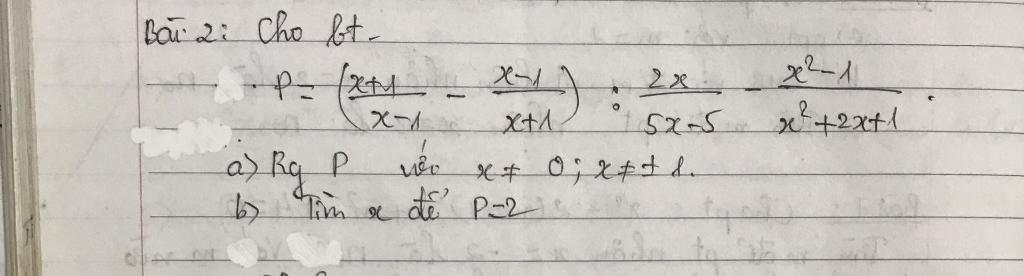 Bài 2: Cho bt-
P = (x+1/x-1 - x-1/x+1) : 2x/5x-5 - x²-1/x²+2x+1.
a) Rg P với x ≠ 0; x ≠ ± 1.
b) Tìm x để P=2